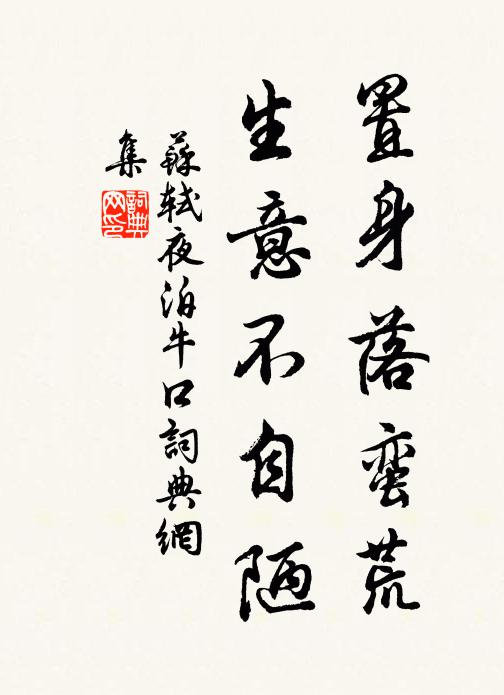 置身落蛮荒
生意不自陋
蘇軾夜泊牛口詞典網
集
詞典
网印